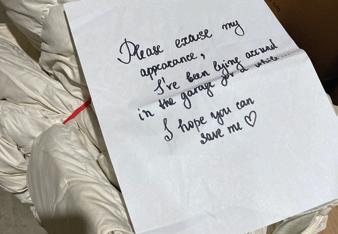 Please excuse my
appearance,
I've been lying around
in the garage for a while...
I hope you can
save me ♡